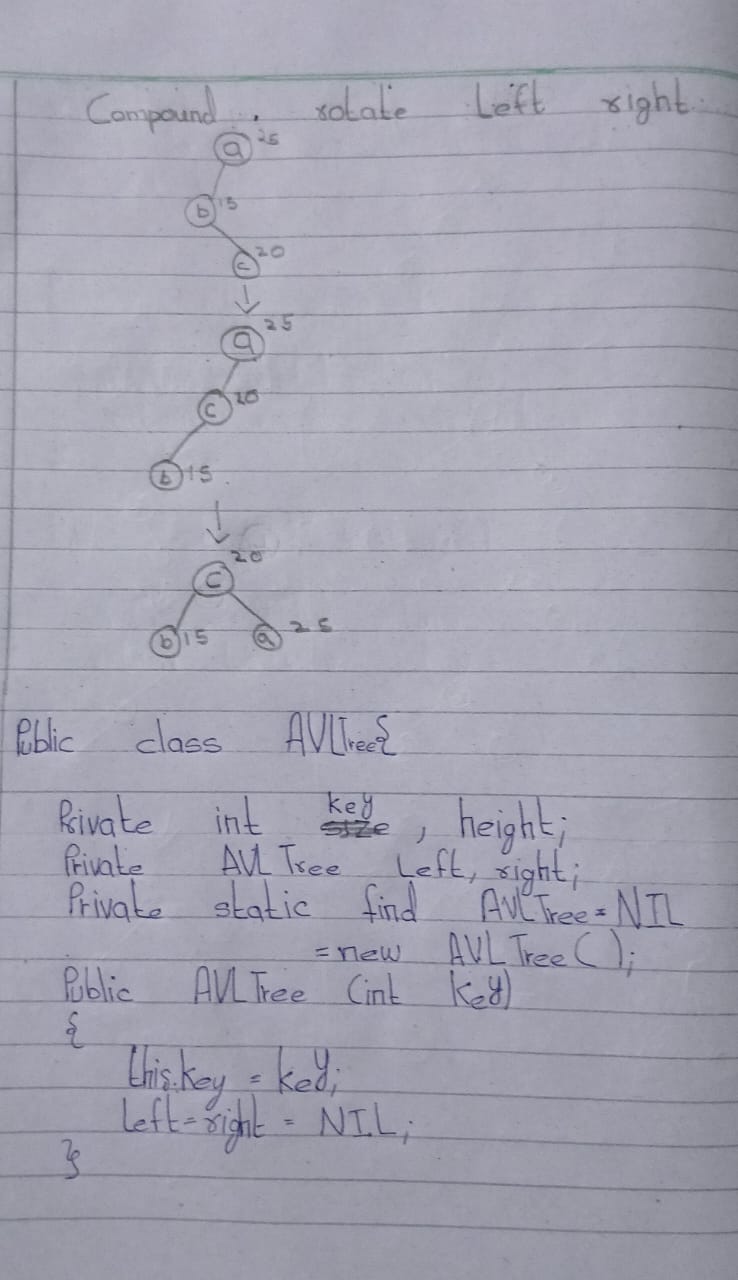 Compound, rotate Left right.
a 25
b 15
c 20
a 25
c 20
b 15
c 20
b 15 a 25
Public class AVLTree{
Private int size key, height;
Private AVL Tree Left, right;
Private static find AVLTree = NIL
= new AVL Tree ();
Public AVL Tree (int key)
{
this.key = key;
left = right = NIL;
}